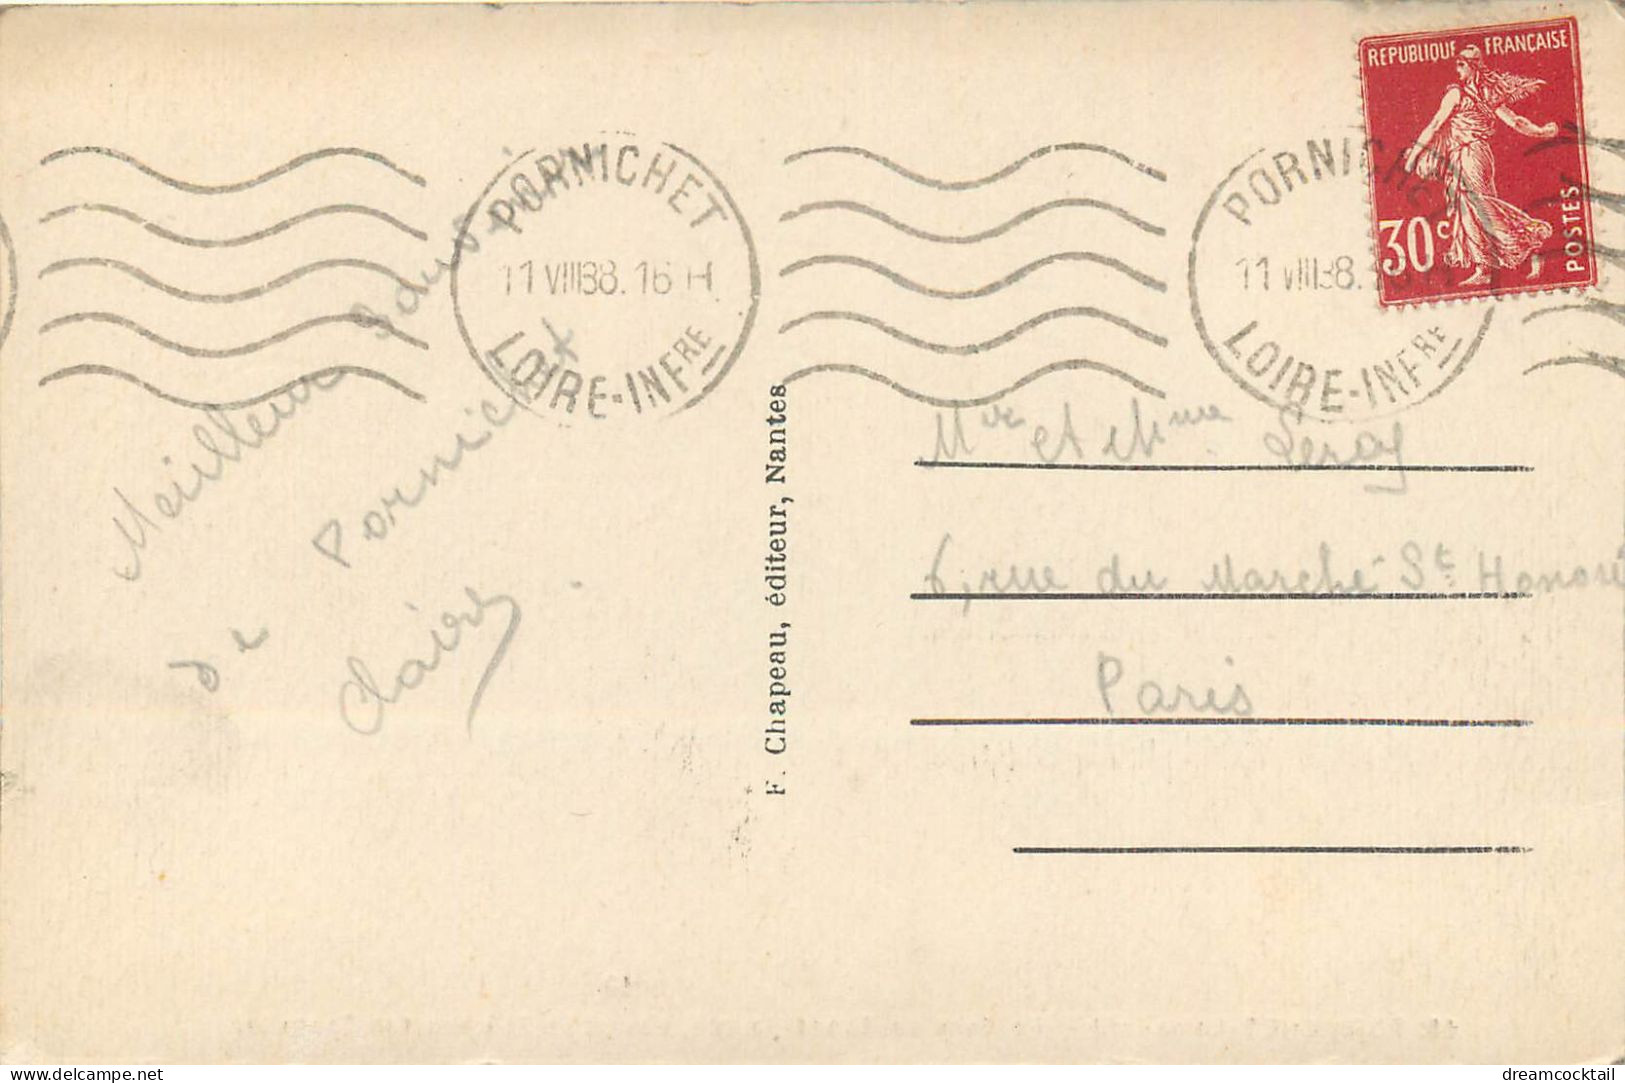 REPUBLIQUE FRANÇAISE
30c
POSTES
PORNICHET
11 VIII 38. 16 H
LOIRE-INFRE
PORNICHET
11 VIII 38.
LOIRE-INFRE
Meilleur
de Pornichet
Claire
F. Chapeau, éditeur, Nantes
et Mme Leroy
6, rue du Marché St Honoré
Paris
delcampe.net
dreamcocktail